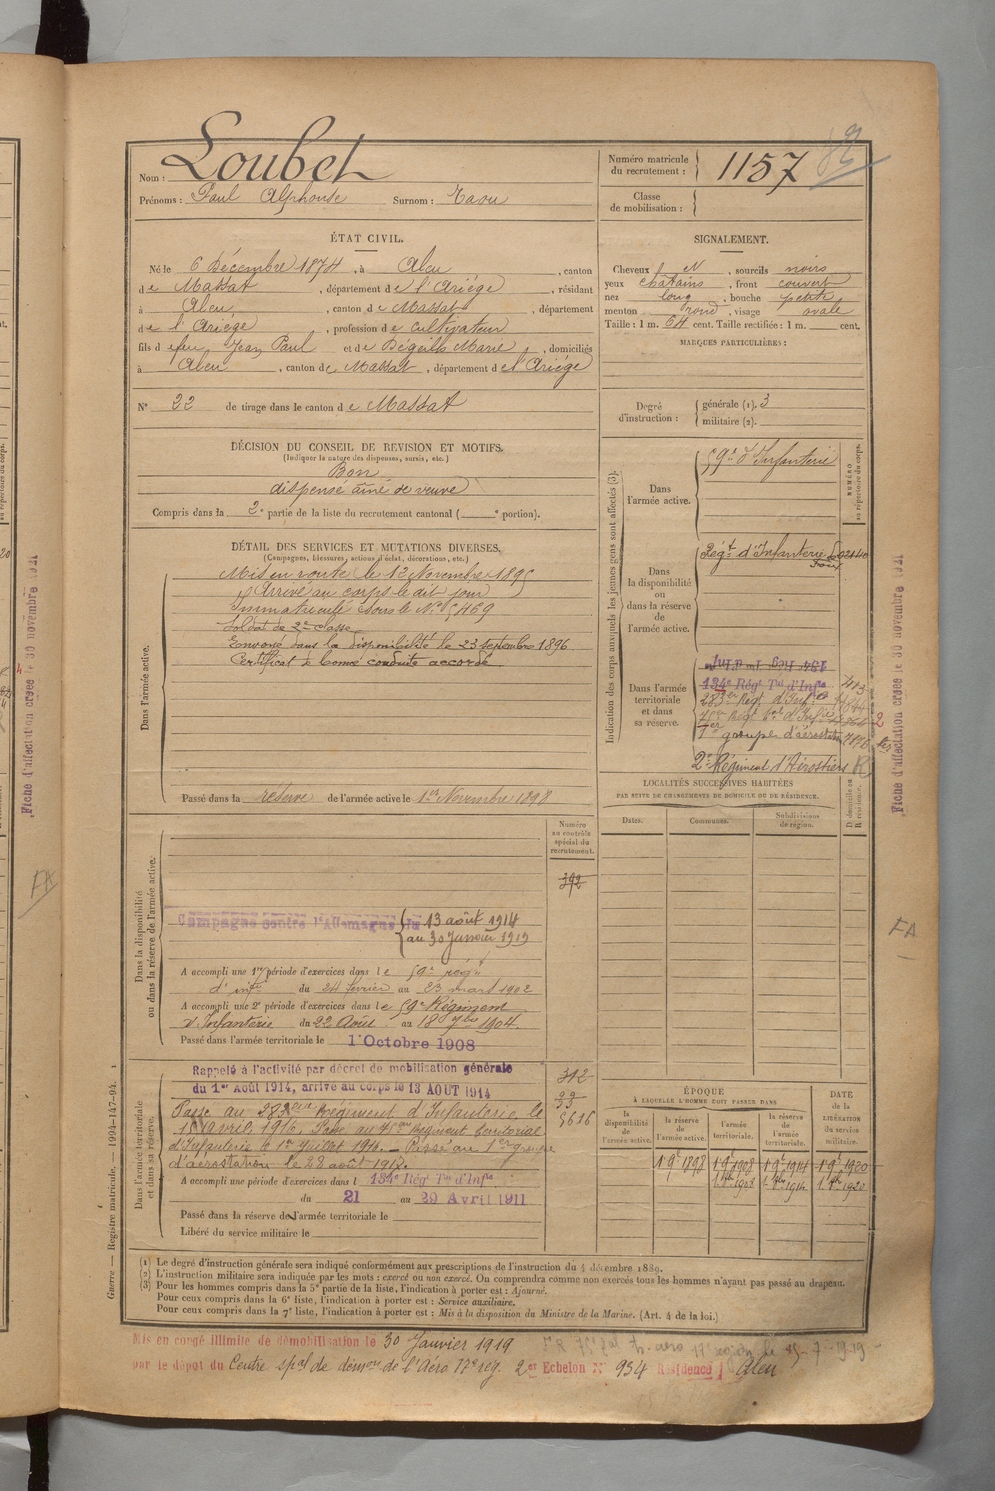 Nom : Loubet
Prénoms : Paul Alphonse Surnom : Taou
Numéro matricule du recrutement : 1157
Classe de mobilisation :
ÉTAT CIVIL.
Né le 6 Décembre 1874, à Aleu, canton
de Massat, département de l'Ariège, résidant
à Aleu, canton de Massat, département
de l'Ariège, profession de cultivateur
fils de feu Jean Paul et de Dégeilh Marie, domiciliés
à Aleu, canton de Massat, département de l'Ariège
N° 22 de tirage dans le canton de Massat
SIGNALEMENT.
Cheveux N, sourcils noirs
yeux chatains, front couvert
nez long, bouche petite
menton rond, visage ovale
Taille : 1 m. 64 cent. Taille rectifiée : 1 m. cent.
MARQUES PARTICULIÈRES :
Degré d'instruction : générale (1). 3
militaire (2).
DÉCISION DU CONSEIL DE REVISION ET MOTIFS.
(Indiquer la nature des dispenses, sursis, etc.)
Bon
dispensé aîné de veuve
Compris dans la 2e partie de la liste du recrutement cantonal ( e portion).
DÉTAIL DES SERVICES ET MUTATIONS DIVERSES.
(Campagnes, blessures, actions d'éclat, décorations, etc.)
Dans l'armée active.
Mis en route le 12 Novembre 1895
Arrivé au corps le dit jour
Immatriculé sous le N° 5469
Soldat de 2e classe
Envoyé dans la disponibilité le 23 septembre 1896
Certificat de bonne conduite accordé
Passé dans la réserve de l'armée active le 1er Novembre 1898
Indication des corps auxquels les jeunes gens sont affectés (3).
NUMÉRO au répertoire du corps.
Dans l'armée active.
59e d'Infanterie
Dans la disponibilité ou dans la réserve de l'armée active.
Régt d'Infanterie de Foix
Dans l'armée territoriale et dans sa réserve.
134e Régt Tal d'Infie 413
283e Régt d'Infie
1er groupe d'aérostation
2e Régiment d'Aérostiers
LOCALITÉS SUCCESSIVES HABITÉES
PAR SUITE DE CHANGEMENTS DE DOMICILE OU DE RÉSIDENCE.
Dates. Communes. Subdivisions de région. D. domicile ou R. résidence.
Numéro au contrôle spécial du recrutement.
392
Dans la disponibilité ou dans la réserve de l'armée active.
Campagne contre l'Allemagne du 13 août 1914
au 30 Janvier 1919
A accompli une 1re période d'exercices dans le 59e régt
d'inf. du 24 février au 23 mars 1902
A accompli une 2e période d'exercices dans le 59e Régiment
d'Infanterie du 22 Août au 18 7bre 1904.
Passé dans l'armée territoriale le 1er Octobre 1908
Dans l'armée territoriale et dans sa réserve.
Rappelé à l'activité par décret de mobilisation générale
du 1er Août 1914, arrivé au corps le 13 AOUT 1914
312
5616
Passé au 283eme Régiment d'Infanterie le
avril 1916. Passé au Régiment territorial
d'Infanterie le 1er Juillet 1916. – Passé au 1er groupe
d'aérostation le 22 août 1917.
A accompli une période d'exercices dans l 134e Régt Tal d'Infie
du 21 au 29 Avril 1911
Passé dans la réserve de l'armée territoriale le
Libéré du service militaire le
ÉPOQUE
A LAQUELLE L'HOMME DOIT PASSER DANS
la disponibilité de l'armée active. la réserve de l'armée active. l'armée territoriale. la réserve de l'armée territoriale.
DATE de la LIBÉRATION du service militaire.
1 9e 1898 1 9e 1908 1 9e 1914 1 9e 1920
(1) Le degré d'instruction générale sera indiqué conformément aux prescriptions de l'instruction du 4 décembre 1889.
(2) L'instruction militaire sera indiquée par les mots : exercé ou non exercé. On comprendra comme non exercés tous les hommes n'ayant pas passé au drapeau.
(3) Pour les hommes compris dans la 5e partie de la liste, l'indication à porter est : Ajourné.
Pour ceux compris dans la 6e liste, l'indication à porter est : Service auxiliaire.
Pour ceux compris dans la 7e liste, l'indication à porter est : Mis à la disposition du Ministre de la Marine. (Art. 4 de la loi.)
Mis en congé illimité de démobilisation le 30 Janvier 1919
par le dépôt du Centre spal de démon de l'Aéro 17e rég. 2er Echelon N° 934 Résidence Aleu
Guerre — Registre matricule. — 1994-147-94.
Fiche d'affectation créée le 30 novembre 1921
Fiche d'affectation créée le 30 novembre 1921
FA
FA